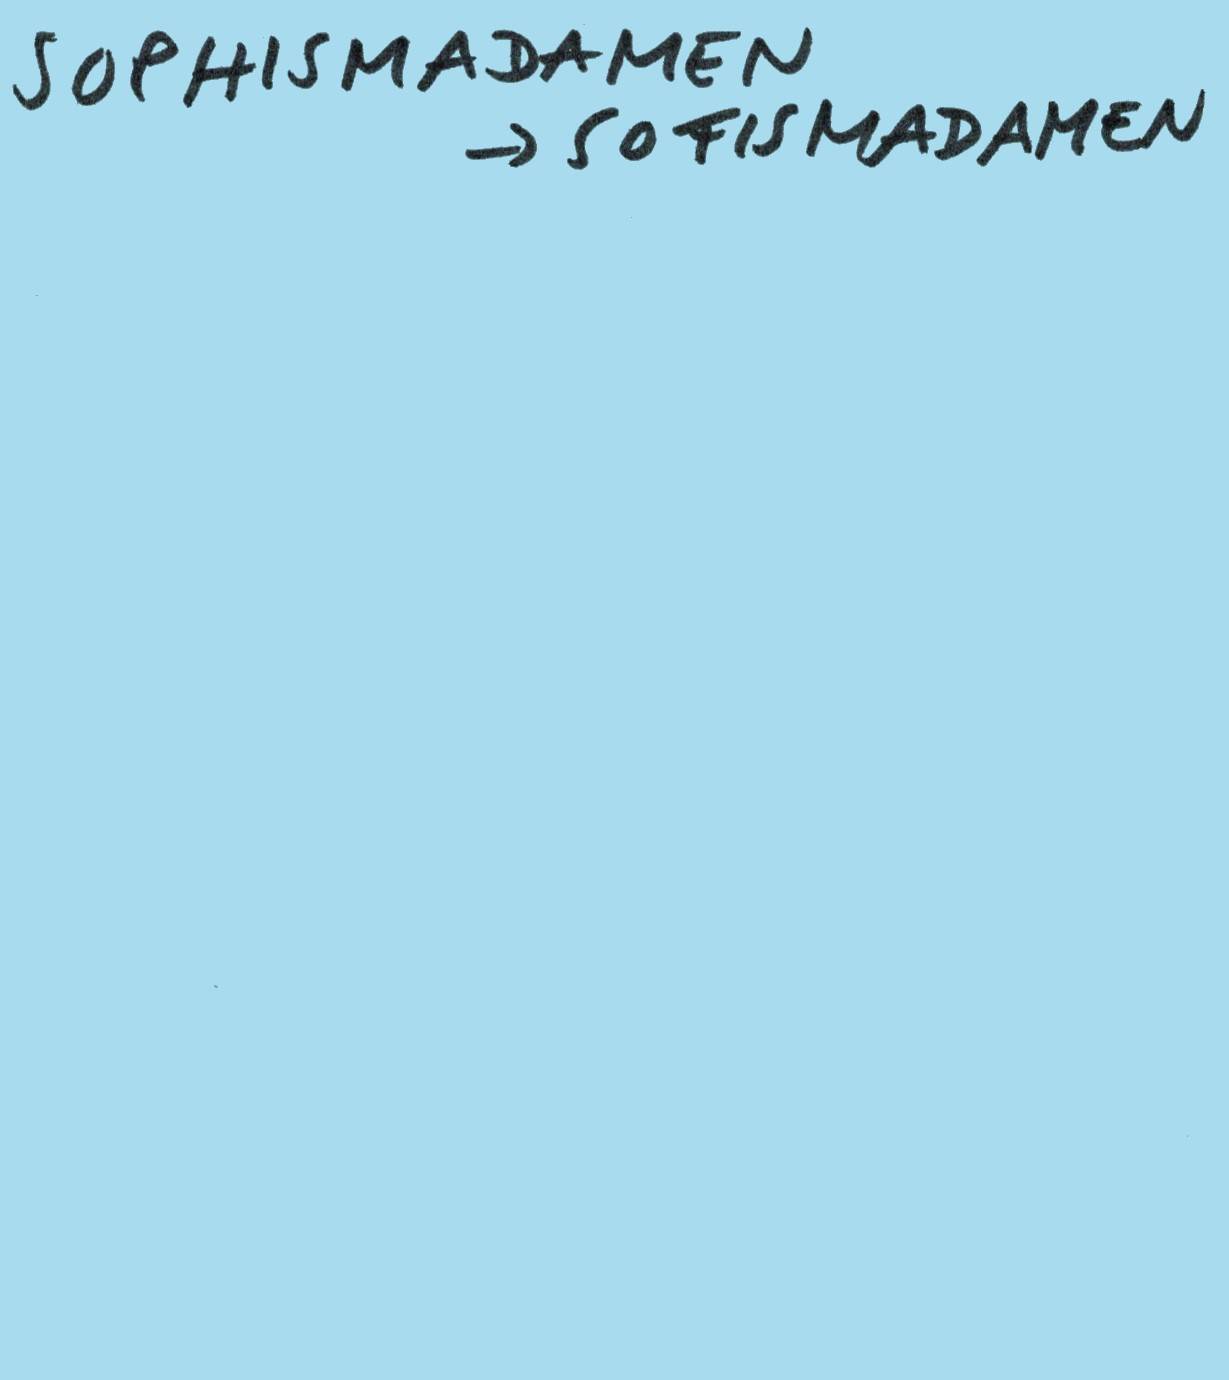 SOPHISMADAMEN
→ SOFISMADAMEN